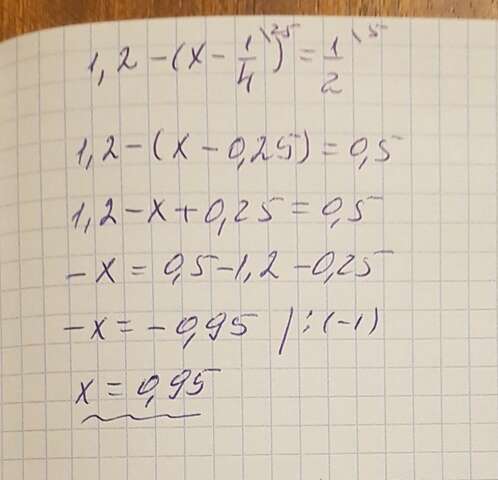 1,2 - (x - 1/4 \25) = 1/2 \5
1,2 - (x - 0,25) = 0,5
1,2 - x + 0,25 = 0,5
-x = 0,5 - 1,2 - 0,25
-x = -0,95 / : (-1)
x = 0,95